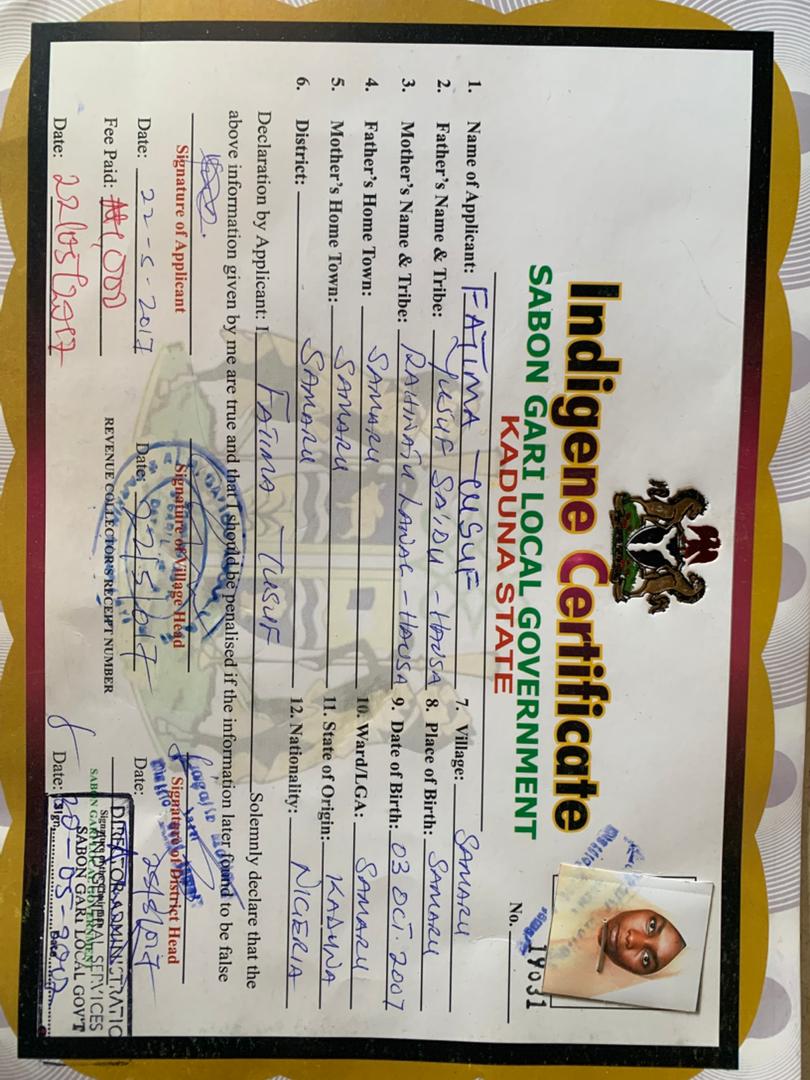 Indigene Certificate
SABON GARI LOCAL GOVERNMENT
KADUNA STATE
No. 19031
1. Name of Applicant: FATIMA YUSUF
2. Father's Name & Tribe: YUSUF SAIDU - HAUSA
3. Mother's Name & Tribe: RAHINATU LAWAL - HAUSA
4. Father's Home Town: SAMARU
5. Mother's Home Town: SAMARU
6. District: SAMARU
7. Village: SAMARU
8. Place of Birth: SAMARU
9. Date of Birth: 03 OCT. 2007
10. Ward/LGA: SAMARU
11. State of Origin: KADUNA
12. Nationality: NIGERIA
Declaration by Applicant: I FATIMA YUSUF Solemnly declare that the
above information given by me are true and that I should be penalised if the information later found to be false
Signature of Applicant
Signature of Village Head
Signature of District Head
Date: 22-5-2017
Date:
Date:
Fee Paid: ₦1,000
REVENUE COLLECTOR'S RECEIPT NUMBER
DIRECTOR ADMINISTRATIO
SERVICES
SABON GARI LOCAL GOVT
Sign
Date: 22/05/2017
Date: